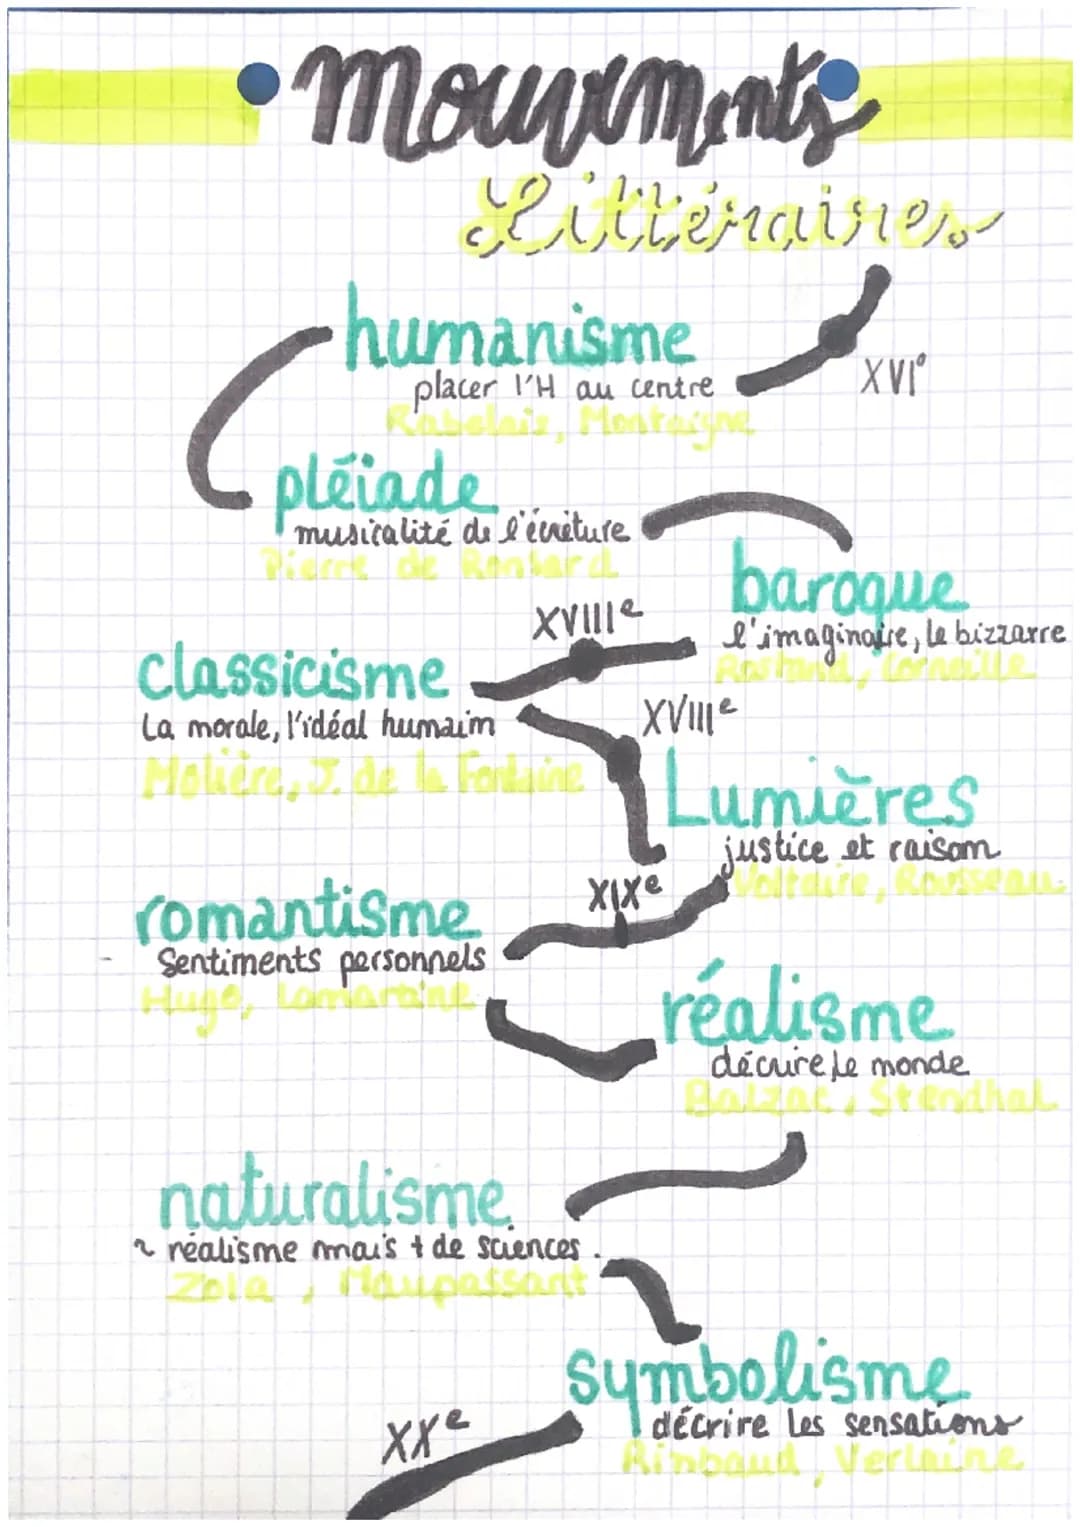 Mouvements
Littéraires
humanisme
XVI°
placer l'H au centre
Rabelais, Montaigne
pléiade
musicalité de l'écriture
Pierre de Ronsard
baroque
l'imaginaire, le bizzarre
Rostand, Corneille
XVIIIe
classicisme
La morale, l'idéal humain
Molière, J. de la Fontaine
XVIIIe
Lumières
justice et raison
Voltaire, Rousseau
XIXe
romantisme
Sentiments personnels
Hugo, Lamartine
réalisme
décrire le monde
Balzac, Stendhal
naturalisme
~ réalisme mais + de sciences.
Zola, Maupassant
symbolisme
décrire les sensations
Rimbaud, Verlaine
XXe